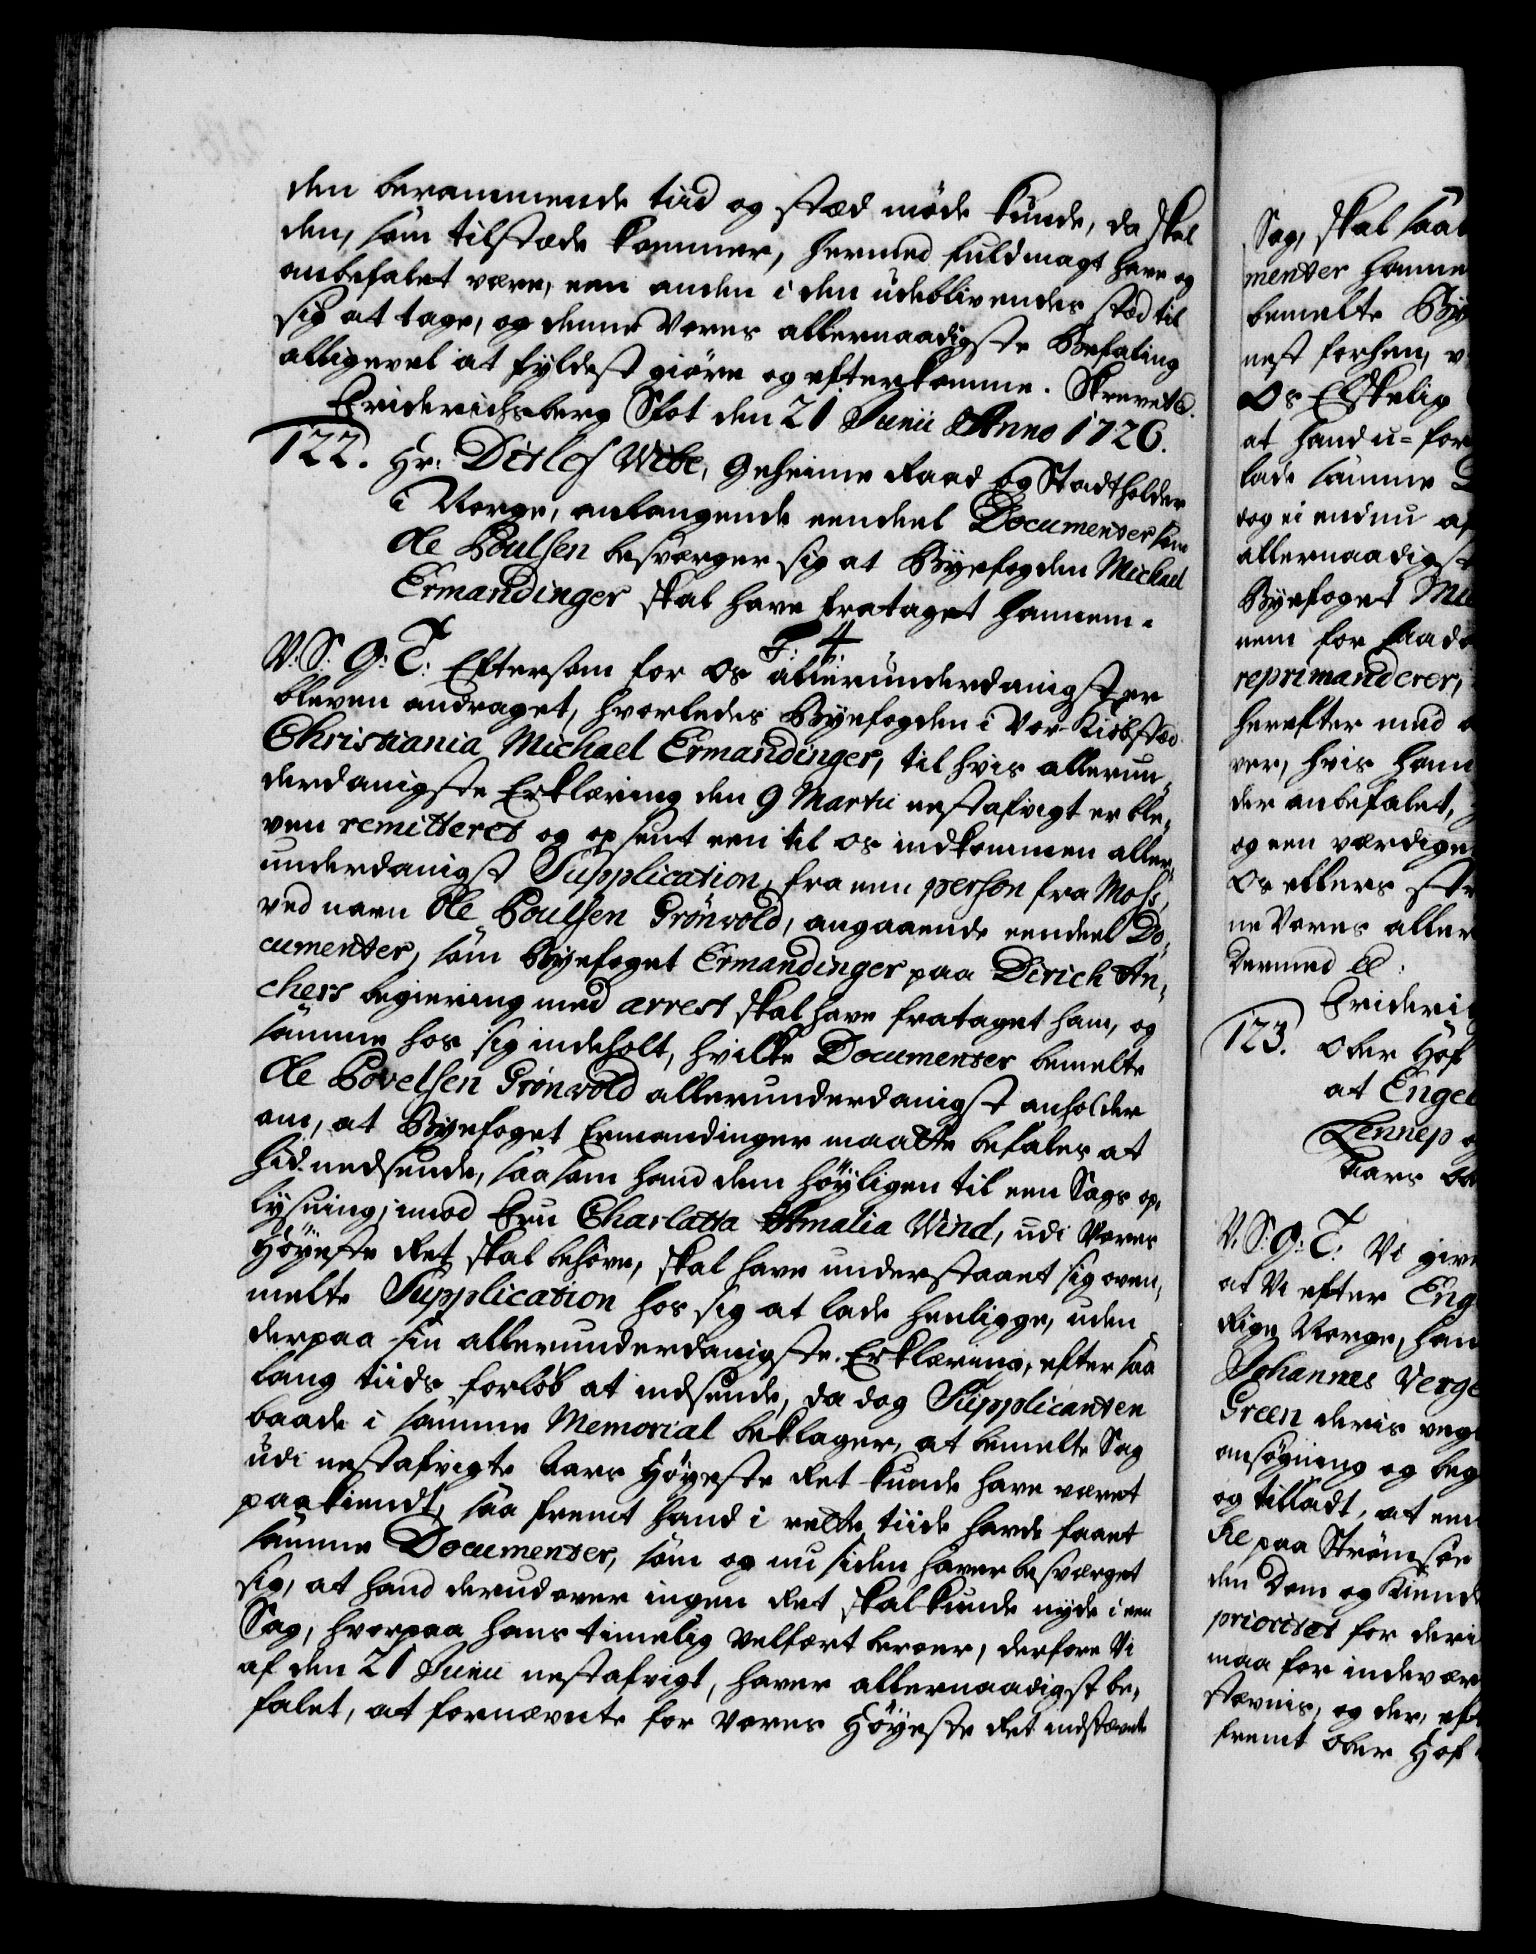 den berammende tiid og stæd møde kunde, da skal
den, som tilstæde kommer, hermed fuldmagt have og
anbefalet være, een anden i den udeblivendes stæd til
sig at tage, og denne Vores allernaadigste Befaling
alligevel at fyldest giöre og efterkomme. Skrevet
Friderichsberg Slot den 21 Junii Anno 1726.
122. Hr: Ditlef Wibe, Geheime Raad og Stadtholder
i Norge, anlangende eendeel Documenter som
Ole Poulsen besværger sig at Byefogden Michael
Ermandinger skal have frataget hannem.
F: 4.
V: S: G: T: Eftersom for os allerunderdanigst er
bleven andraget, hvorledes Byefogden i Vor Kiöbstæd
Christiania Michael Ermandinger, til hvis allerun,,
derdanigste Erklæring den 9 Martii nestafvigt er ble,,
ven remitteret og op sent een til os indkommen aller,,
underdanigst Supplication, fra een person fra Moss,
ved navn Ole Poulsen Grönvold, angaaende eendeel Do,,
cumenter, som Byefoget Ermandinger paa Dirich An,,
chers begiering med arrest skal have frataget ham, og
samme hos sig indeholt, hvilke Documenter bemelte
Ole Povelsen Grönvold allerunderdanigst anholder
om, at Byefoget Ermandinger maatte befales at
hid nedsende, saasom hand dem höyligen til een Sags op,,
lysning, imod Fru Charlatta Amalia Wind, udi Vores
Höyeste Ret skal behöve, skal have understaaet sig oven,,
melte Supplication hos sig at lade henligge, uden
derpaa sin allerunderdanigste Erklæring, efter saa
lang tiids forlöb at indsende, da dog Supplicanten
baade i samme Memorial beklager, at bemelte Sag
udi nestafvigte Aars Höyeste Ret kunde have været
paakiendt, saa fremt hand i rette tiide havde faaet
samme Documenter, som og nu siden haver besværget
sig, at hand derudover ingen Ret skal kunde nyde i een
Sag, hvorpaa hans timelig velfært beroer, derfore Vi
af den 21 Junii nestafvigt, haver allernaadigst be,,
falet, at fornævnte for Vores Höyeste Ret indstævnte
Sag, skal
menter hanne
bemelte
nest forhen,
Os Elskelig
at hand
lade samme
dog ei endnu
allernaadigst
Byefoget
nem for
reprimanderer,
herefter med
ver, hvis
der anbefalet,
og een værdige
Os ellers
ne Vores aller
Dermed
Frideri
123. Ober Hof
at Engel
Lennep
Aars
V: S: G: T: Vi give
at Vi efter Eng
Rige Norge, han
Johannes Verge
Green deris
ansögning og beg
og tilladt, at een
paa Strömsöe
den Dom og Kiende
prioritet for deri
maa for indevær
stævnis, og der, eft
fremt Ober Hof